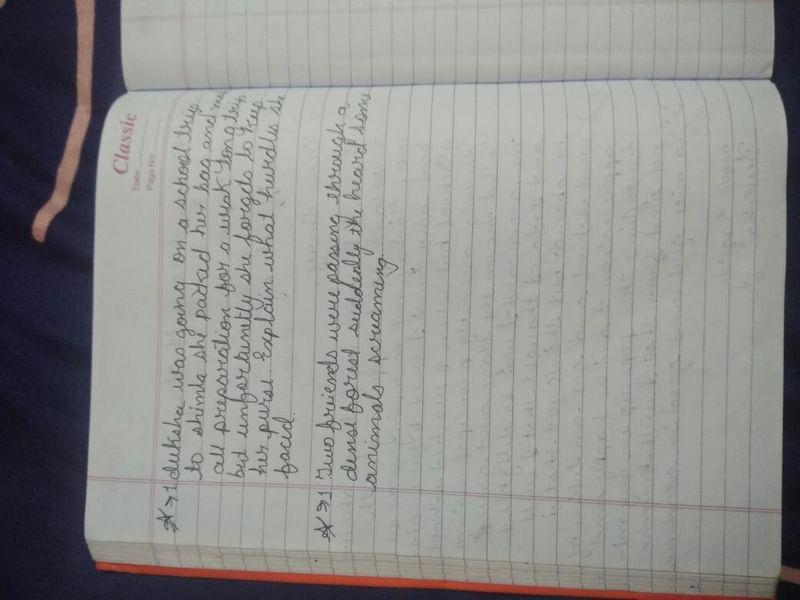 Classic
Date
Page No.
1 Diksha was going on a school trip
to shimla she packed her bag and
all preparation for a weak long trip
but unfortunetly she forgets to keep
her purse. Explain what hurdles she
faced.
1 Two friends were passing through a
dense forest suddenly the heard some
animals screaming.